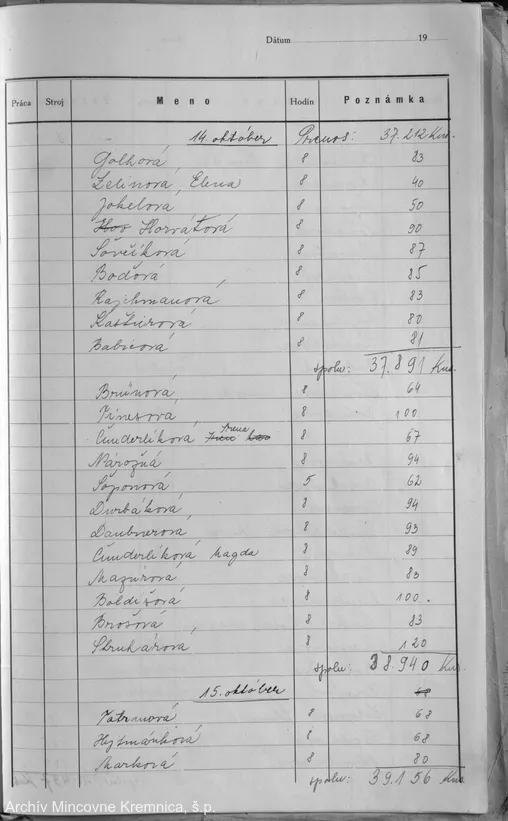 Dátum 19
Práca Stroj Meno Hodín Poznámka
14. október Prenos: 37.212 Kus.
Golhová 8 83
Zelinová, Elena 8 40
Jokelová 8 50
Horváťová 8 90
Ševčíková 8 87
Boďová 8 85
Rajchmanová 8 83
Kaštúrová 8 80
Babicová 8 81
spolu: 37.891 Kus.
Brúnová, 8 64
Tinesová 8 100
Čunderlíková Irena 8 67
Nárožná 8 94
Šoponová 5 62
Durbáková, 8 94
Daubnerová 8 93
Čunderlíková Magda 8 89
Mazúrová 8 83
Boldišová 8 100.
Brošová, 8 83
Struhárová 8 120
spolu: 38.940 Kus.
15. október 68
Tatrnová 8 68
Hejtmánková 8 68
Marková 8 80
spolu: 39.156 Kus.
Archív Mincovne Kremnica, š.p.